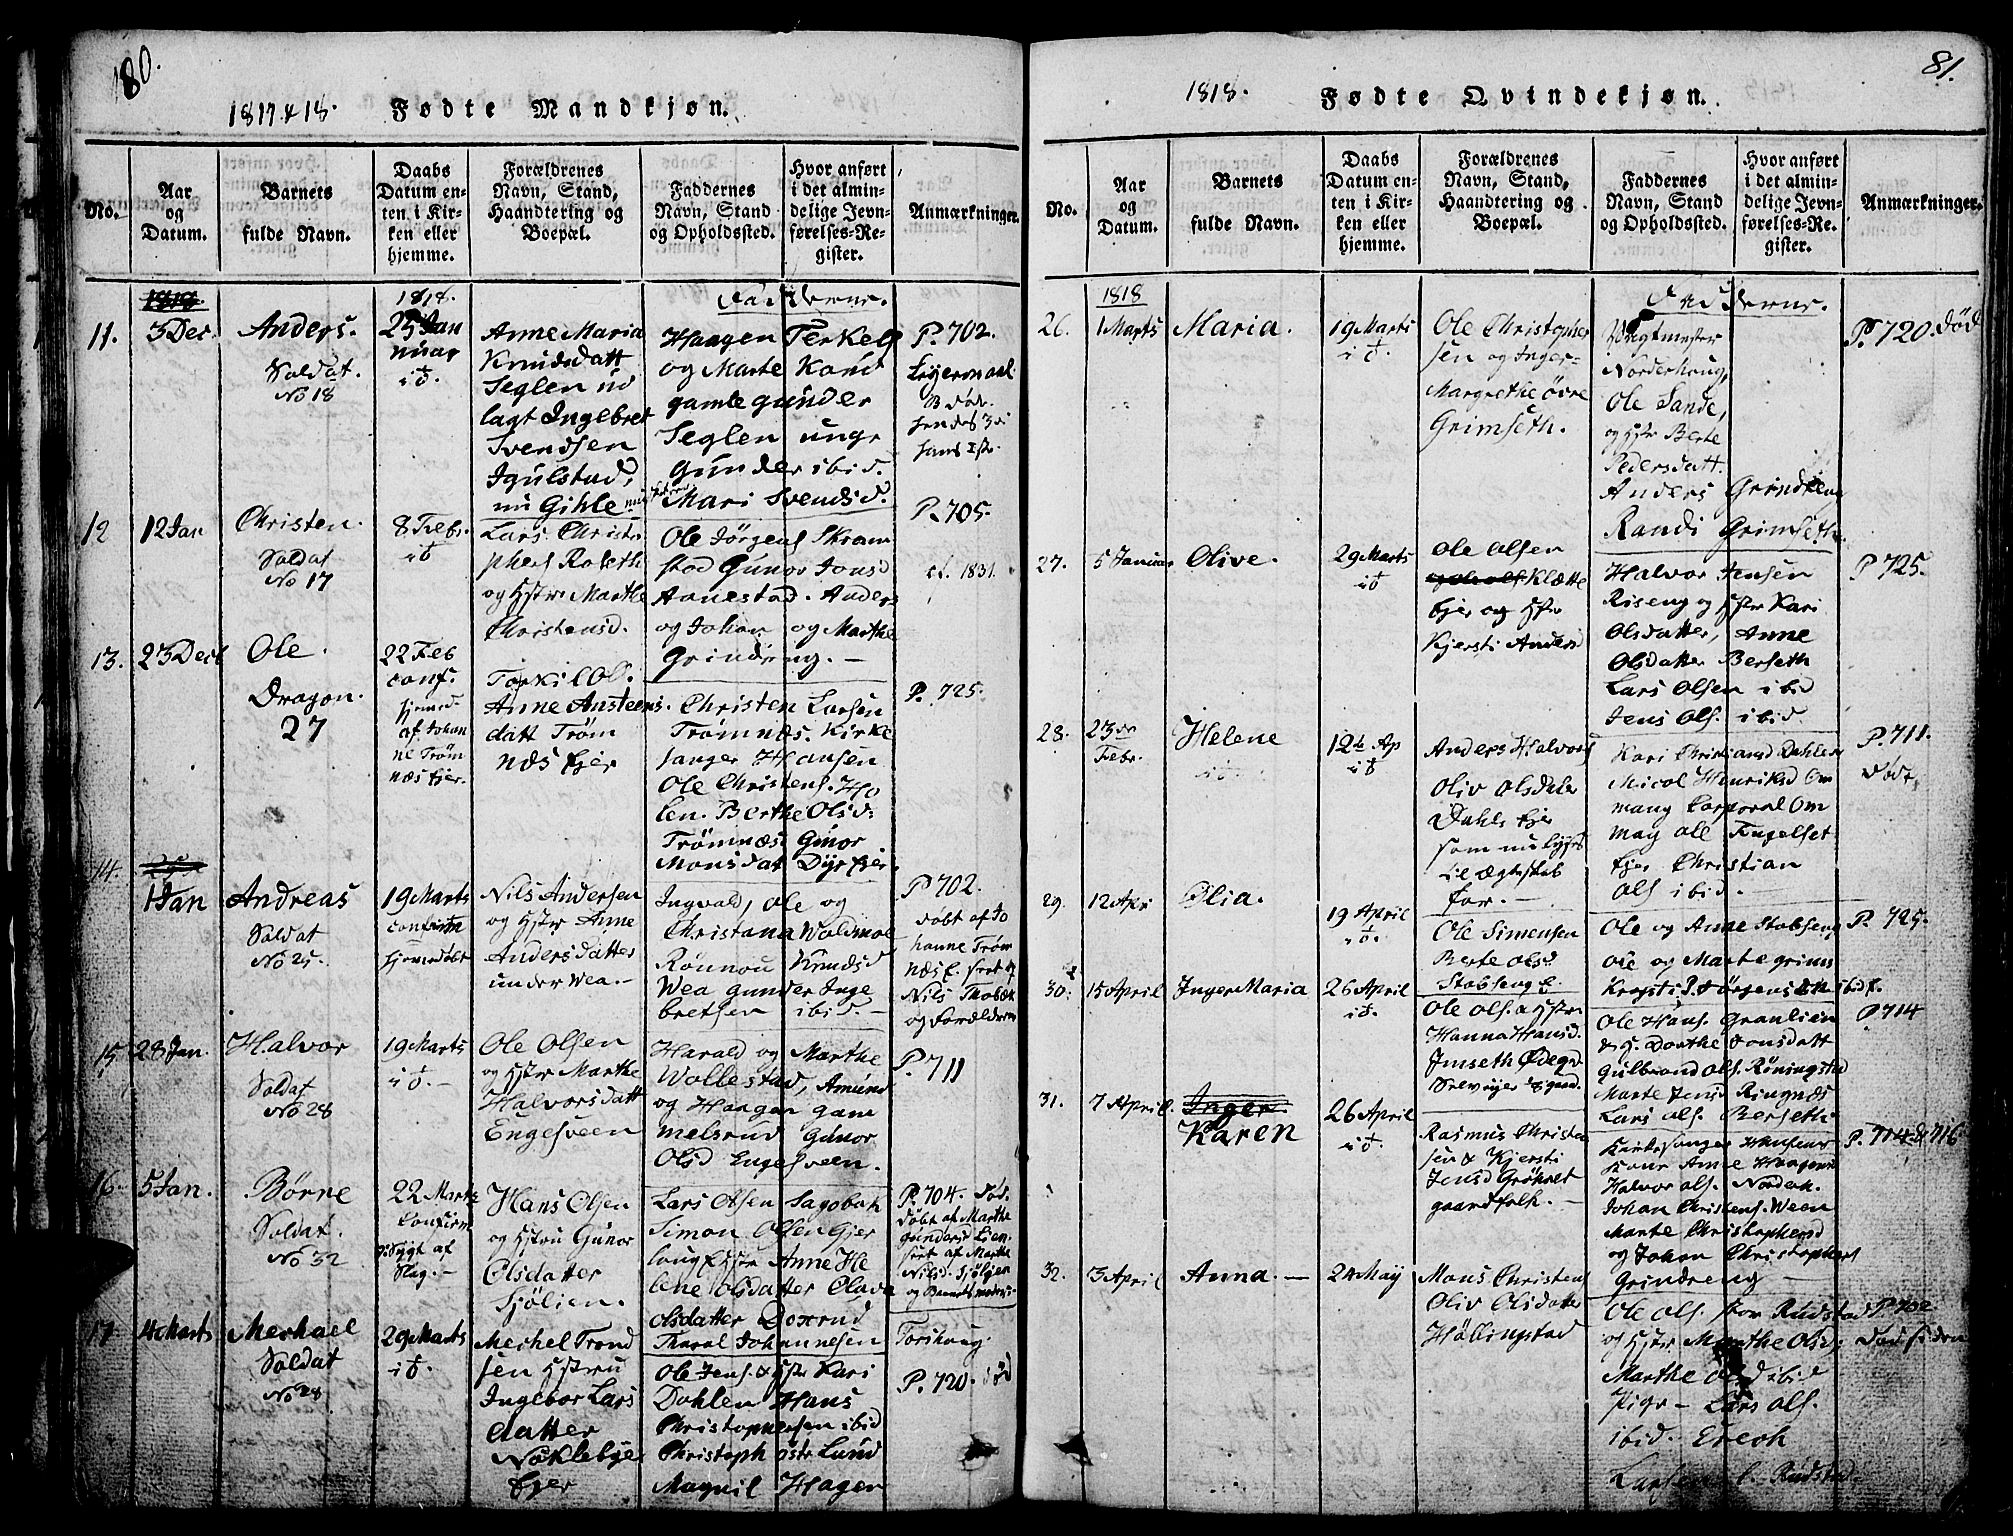 80.
1817 & 18. Fødte Mandkjøn.
No.
Aar og Datum.
Barnets fulde Navn.
Daabs Datum enten i Kirken eller hjemme.
Forældrenes Navn, Stand, Haandtering og Boepæl.
Faddernes Navn, Stand og Opholdssted.
Hvor anført i det almindelige Jevnførelses-Register.
Anmærkninger.
1818.
Fadderne.
11. 3 Dec.
Anders.
Soldat.
No 18
25 Jan
nuar
i K.
Anne Maria
Knudsdatt
Seglen ud
lagt Ingebret
Svendsen
Igulstad,
nu Gihle
Haagen Terkels
og Marte Kond
gamle Gunder
Seglen unge
Gunder ibid.
Mari Svendsd.
P. 702.
Leiermaal
12 12 Jan
Christen.
Soldat
No 17
8 Febr.
Lars Christo
phers Roseth
og Hstr Marthe
Christensd.
Ole Jörgens Skram
stad Gunor Jonsd
Aanestad. Anders
og Johan og Marthe
Grindeng. —
P. 705.
cf. 1831.
13. 23 Decb
Ole.
Dragon.
27
22 Feb
conf.
hjemed.
af Johan
ne Tröm
næs Ejer.
Torkil Ol.
Anne Austeens
datt Tröm
næs Ejer
Christen Larsen
Trömnæs. Kirke
sanger Hansen
Ole Christens. Ho
len. Berthe Olsd.
Trömnæs Gunor
Monsdat Dyr Ejer
P. 725.
14.
1 Jan
Andreas
Soldat
No 25.
19 Marts
confirm
hjemedöbt
Nils Andersen
og Hstr Anne
Andersdatter
under Wea. —
Ingvald, Ole og
Christana Woldmoe
Rönnou Knudsd
Wea Gunder Inge
bretsen ibid. —
P 702.
döbt af Jo
hanne Tröm
næs
og Forældrene
15 28 Jan.
Halvor
Soldat
No 28
19 Marts
Ole Olsen
og Hstr Marthe
Halvorsdatt
Engesveen
Harald og Marthe
Wollestad, Amund
og Haagen gam
melsrud Gunor
Olsd Engesveen.
P. 711
16. 5 Jan.
Börre
Soldat.
No 32
22 Marts
confirm
af
Slag. —
Hans Olsen
og Hstru Gunor
Olsdatter
Sjölien.
Lars Olsen Sagobak
Simon Olsen Gjer
laug Hstr Anne He
lene Olsdatter Olava
Olsdatter Doxrud
Tharal Johannesen
P. 704. död.
döbt af Marthe
Gundersd Lien
Torshoug.
17 4 Marts
Mechael
Soldat
No 28
29 Marts
Mechel Trond
sen Hstru
Ingebor Lars
datter
Noklebye
Ejer
Ole Jens. & Hstr Kari
Dahlen Hans
Christophersen ibid
Christoph Lund
Magnil Hagen
P. 720. död
81.
1818. Fødte Qvindekjøn.
No.
Aar og Datum.
Barnets fulde Navn.
Daabs Datum enten i Kirken eller hjemme.
Forældrenes Navn, Stand, Haandtering og Boepæl.
Faddernes Navn, Stand og Opholdssted.
Hvor anført i det almindelige Jevnførelses-Register.
Anmærkninger.
1818
Fadderne.
26. 1 Marts
Maria.
19 Marts
Ole Christopher
sen og Inger
Margrethe övre
Grimseth.
Vagtmester
Norderhoug,
Ole Sande,
og Hstr Berte
Pedersdatt.
Anders Grindeng
Randi Grimseth
P. 720. död
27. 5 Januar
Olive.
29 Marts
Ole Olsen
Klætte
Ejer og Hstr
Kjersti Andersd
Halvor Jensen
Riseng og Hstr Kari
Olsdatter, Anne
Olsdatter Berseth
Lars Olsen ibid
Jens Ols. ibid.
P 725.
28. 23de
Febr.
Helene
12te Ap
Anders Halvors
Oliv Olsdater
Dahls Ejer
som nu lyses
til Ægteskab
for. —
Kari Christiansd Dahlen
Micol Henriksd Om
mang Corporal Om
mag Ole Engelset
Ejer Christian
Ols ibid. —
P. 711.
död.
29. 12 Apr
Olia.
19 April
Ole Simensen
Berte Olsd
Stobseng E.
Ole og Anne Stobseng
Ole og Marte Grims
P. 725.
30. 15 April
Inger Maria
26 April
Ole Ols. & Hstr
Hanna Hansd.
Imseth Ödegd
Ole Hans. Granlien
& H. Dorthe Jonsdatt
Gulbrand Ols. Röningstad
Marte Jensd Ringnæs
Lars Ols. Berseth
P 714
31. 7 April.
Inger
Karen
26 April
Rasmus Christen
sen & Kjersti
Jensd Gröhret
gaardfolk. —
Kirkesanger Hansens
Kone Anne Haagens
Halvor Ols. Norderh.
Johan Christens. Ween
Marte Christophersd
og Johan Christophers
Grindreng —
P. 714 & 716
32. 3 April
Anna. —
24 May
Mons Christens
Oliv Olsdatter
Höllingstad
Ole Ols. stor Rudstad
og Hstr Marthe Olsd.
Marthe Olsd ibid
Pige — Lars Ols.
ibid. Erech
Larsen Rudstad
P 702
död siden